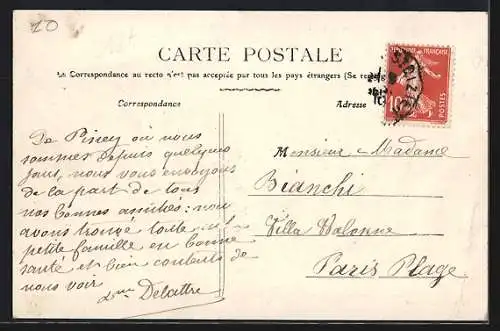 20
CARTE POSTALE
La Correspondance au recto n'est pas acceptée par tous les pays étrangers (Se
Correspondance
Adresse
De Pisey où nous
sommes depuis quelques
jours, nous vous envoyons
de la part de tous
nos bonnes amitiés: nous
avons trouvé toute la
petite famille en bonne
santé et bien contents de
nous voir
Delattre
Monsieur Madame
Bianchi
Villa Valonne
Paris Plage
FRANÇAISE
10
POSTES